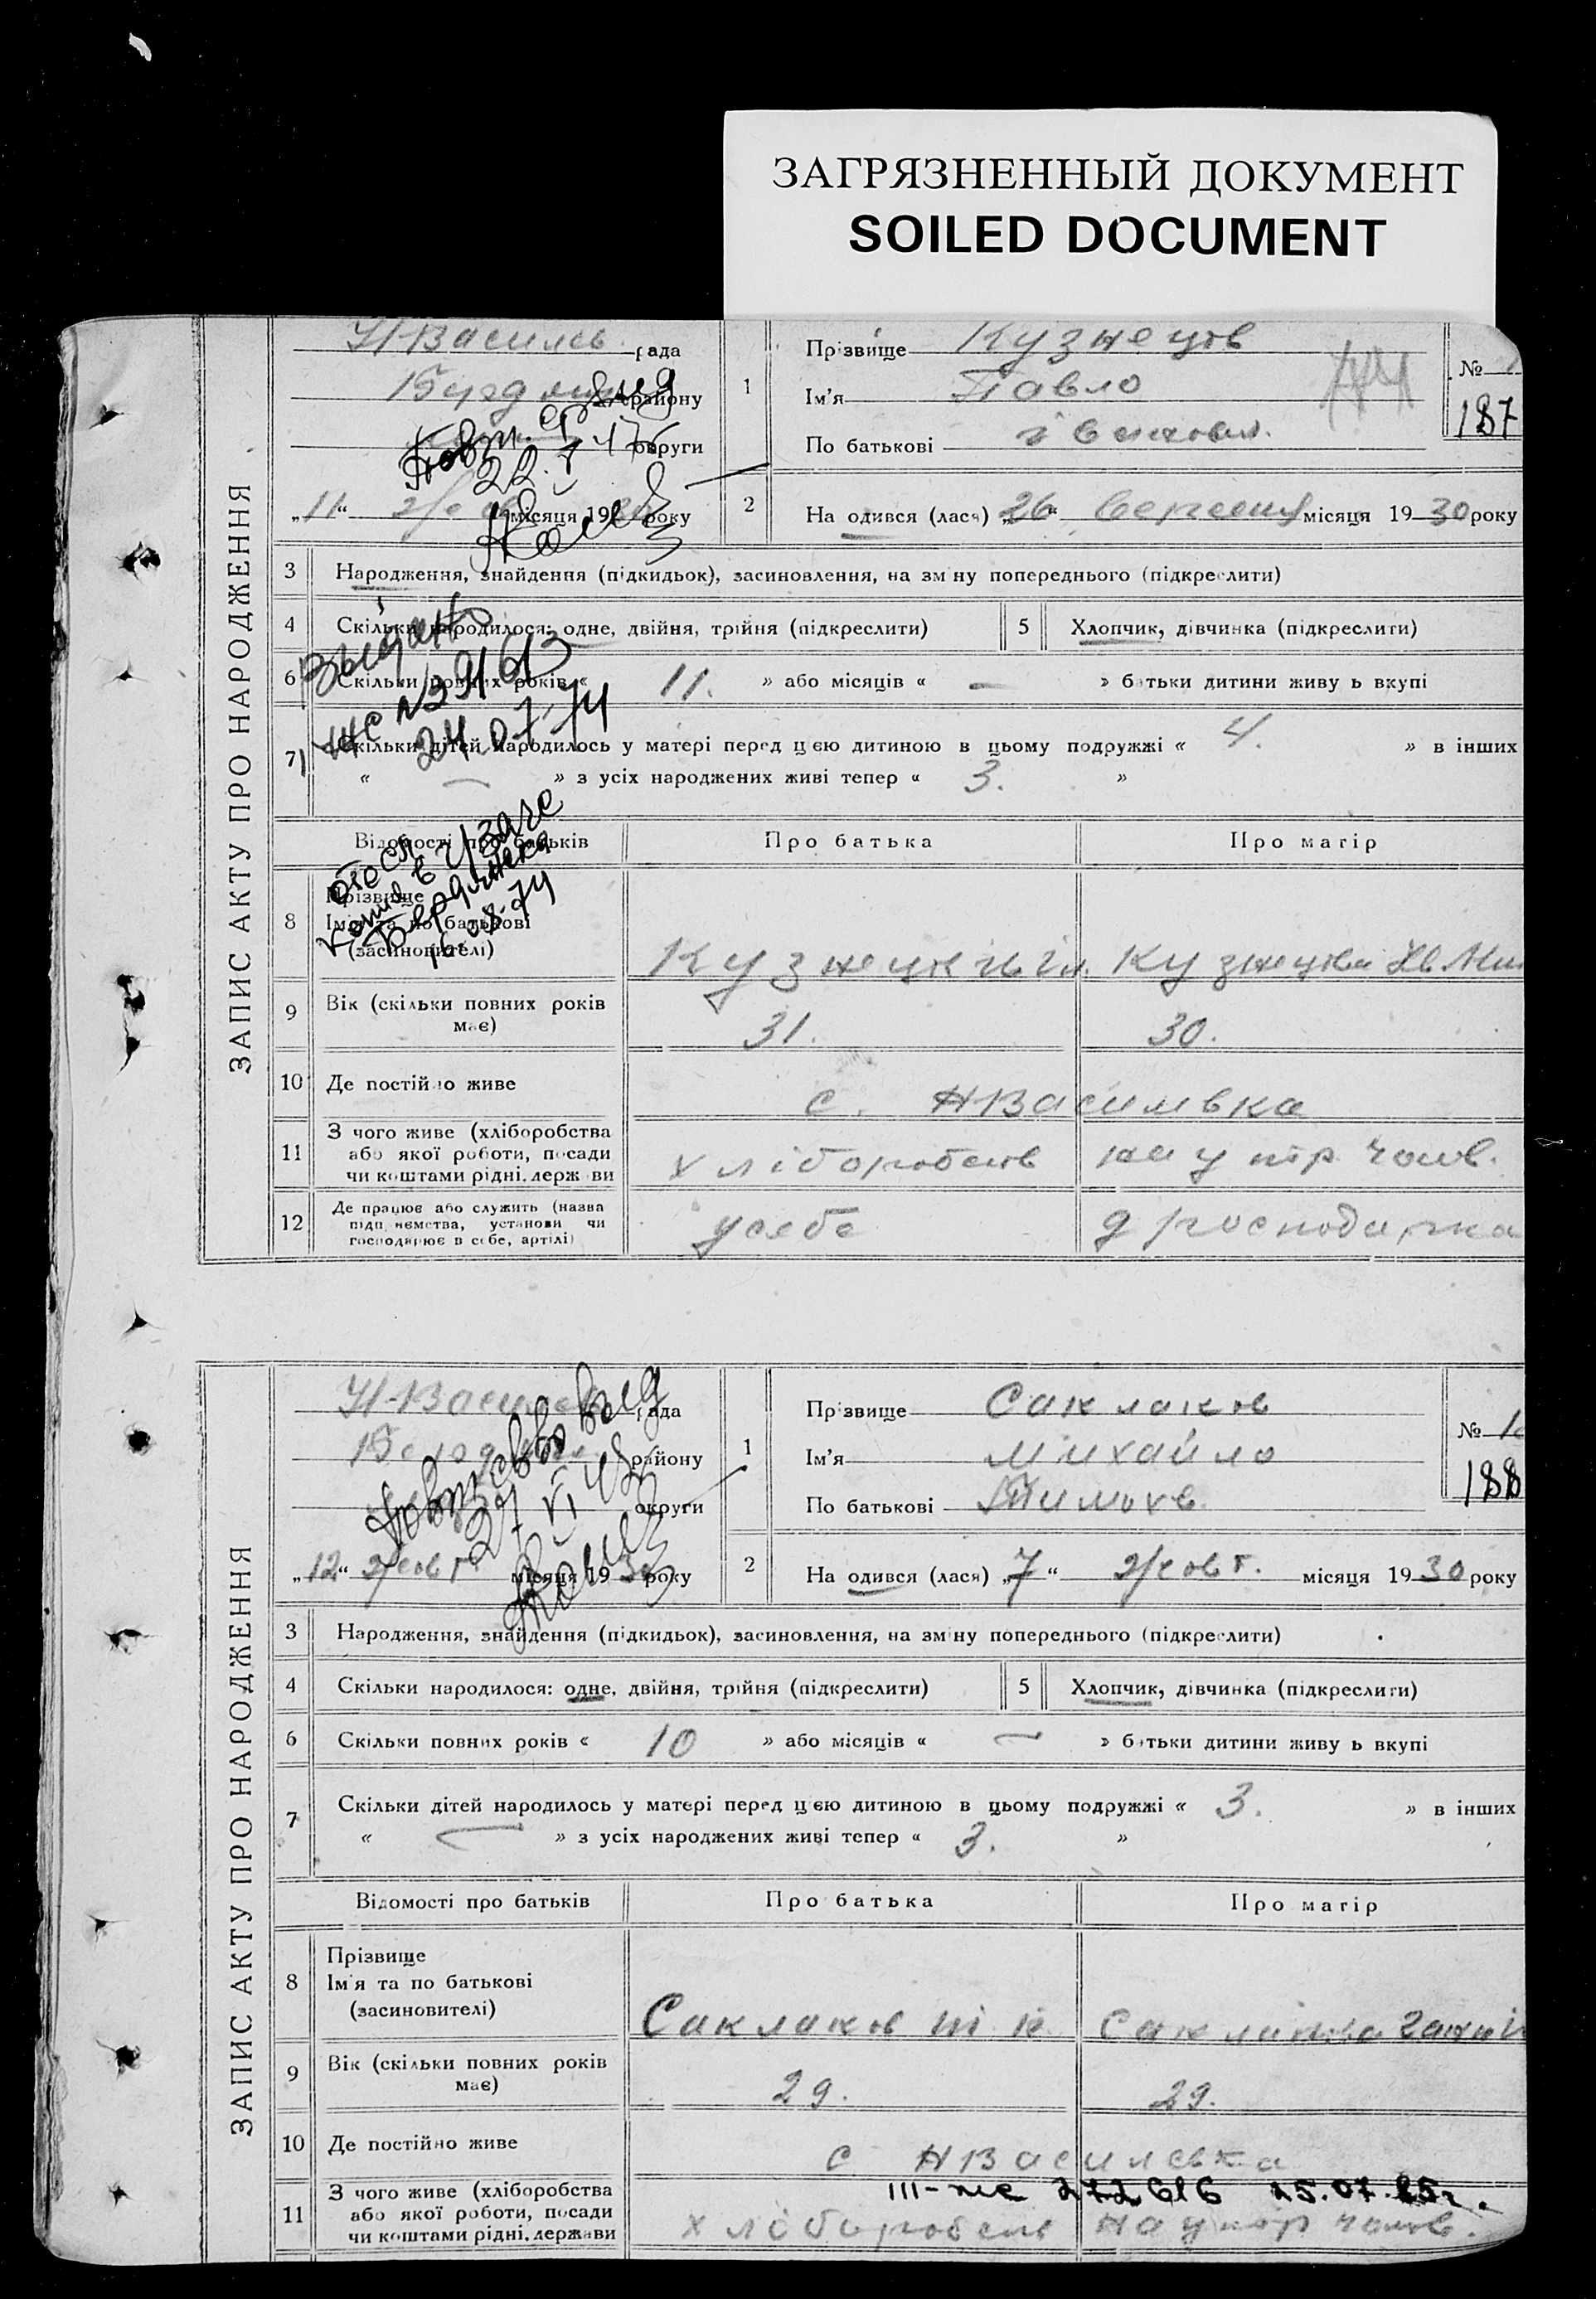 ЗАГРЯЗНЕННЫЙ ДОКУМЕНТ
SOILED DOCUMENT
ЗАПИС АКТУ ПРО НАРОДЖЕННЯ
Н-Василів рада
району
округи
„11“ місяця 1930 року
1
Прізвище Кузнецов
Ім'я Павло
По батькові
№
187
2
На одився (лася) „26“ вересня місяця 1930 року
3 Народження, знайдення (підкидьок), засиновлення, на зміну попереднього (підкреслити)
4 Скільки народилося: одне, двійня, трійня (підкреслити)
5 Хлопчик, дівчинка (підкреслити)
6 Скільки повних років « 11. » або місяців « — » батьки дитини живуть вкупі
7 Скільки дітей народилось у матері перед цією дитиною в цьому подружжі « 4. » в інших
« — » з усіх народжених живі тепер « 3. »
№ 391613
24.07.74
Бердянска
16.08.74
Відомості про батьків Про батька Про матір
8 Прізвище
Ім'я та по батькові
(засиновителі)
Кузнецова
9 Вік (скільки повних років
має) 31. 30.
10 Де постійно живе с. НВасилівка
11 З чого живе (хліборобства
або якої роботи, посади
чи коштами рідні, держави
хлібороб на утр. чолов.
12 Де працює або служить (назва
підприємства, установи чи
господарює в себе, артілі)
у себе д/господарка
ЗАПИС АКТУ ПРО НАРОДЖЕННЯ
Н-Василів рада
району
округи
„12“ жовт. місяця 1930 року
1
Прізвище Саклаков
Ім'я Михайло
По батькові Тимохв.
№
188
2
На одився (лася) „7“ жовт. місяця 1930 року
3 Народження, знайдення (підкидьок), засиновлення, на зміну попереднього (підкреслити)
4 Скільки народилося: одне, двійня, трійня (підкреслити)
5 Хлопчик, дівчинка (підкреслити)
6 Скільки повних років « 10 » або місяців « — » батьки дитини живуть вкупі
7 Скільки дітей народилось у матері перед цією дитиною в цьому подружжі « 3. » в інших
« — » з усіх народжених живі тепер « 3. »
Відомості про батьків Про батька Про матір
8 Прізвище
Ім'я та по батькові
(засиновителі)
Саклаков Саклакова
9 Вік (скільки повних років
має) 29. 29.
10 Де постійно живе с НВасилевка
III-же 272616 25.07.85г.
11 З чого живе (хліборобства
або якої роботи, посади
чи коштами рідні, держави
хлібороб на утр чолов.